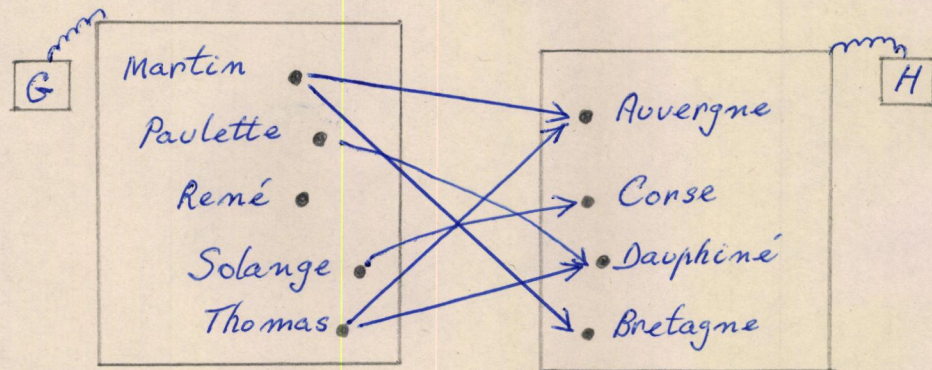 G
Martin
Paulette
René
Solange
Thomas
H
Auvergne
Corse
Dauphiné
Bretagne